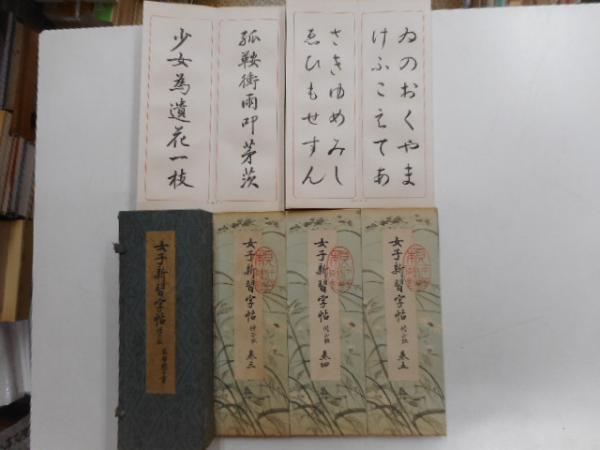 ゐのおくやま
けふこえてあ
さきゆめみし
ゑひもせすん
孤鞍衝雨叩茅茨
少女為遺花一枝
女子新習字帖 修正版
女子新習字帖 修正版 巻三
女子新習字帖 修正版 巻四
女子新習字帖 修正版 巻五